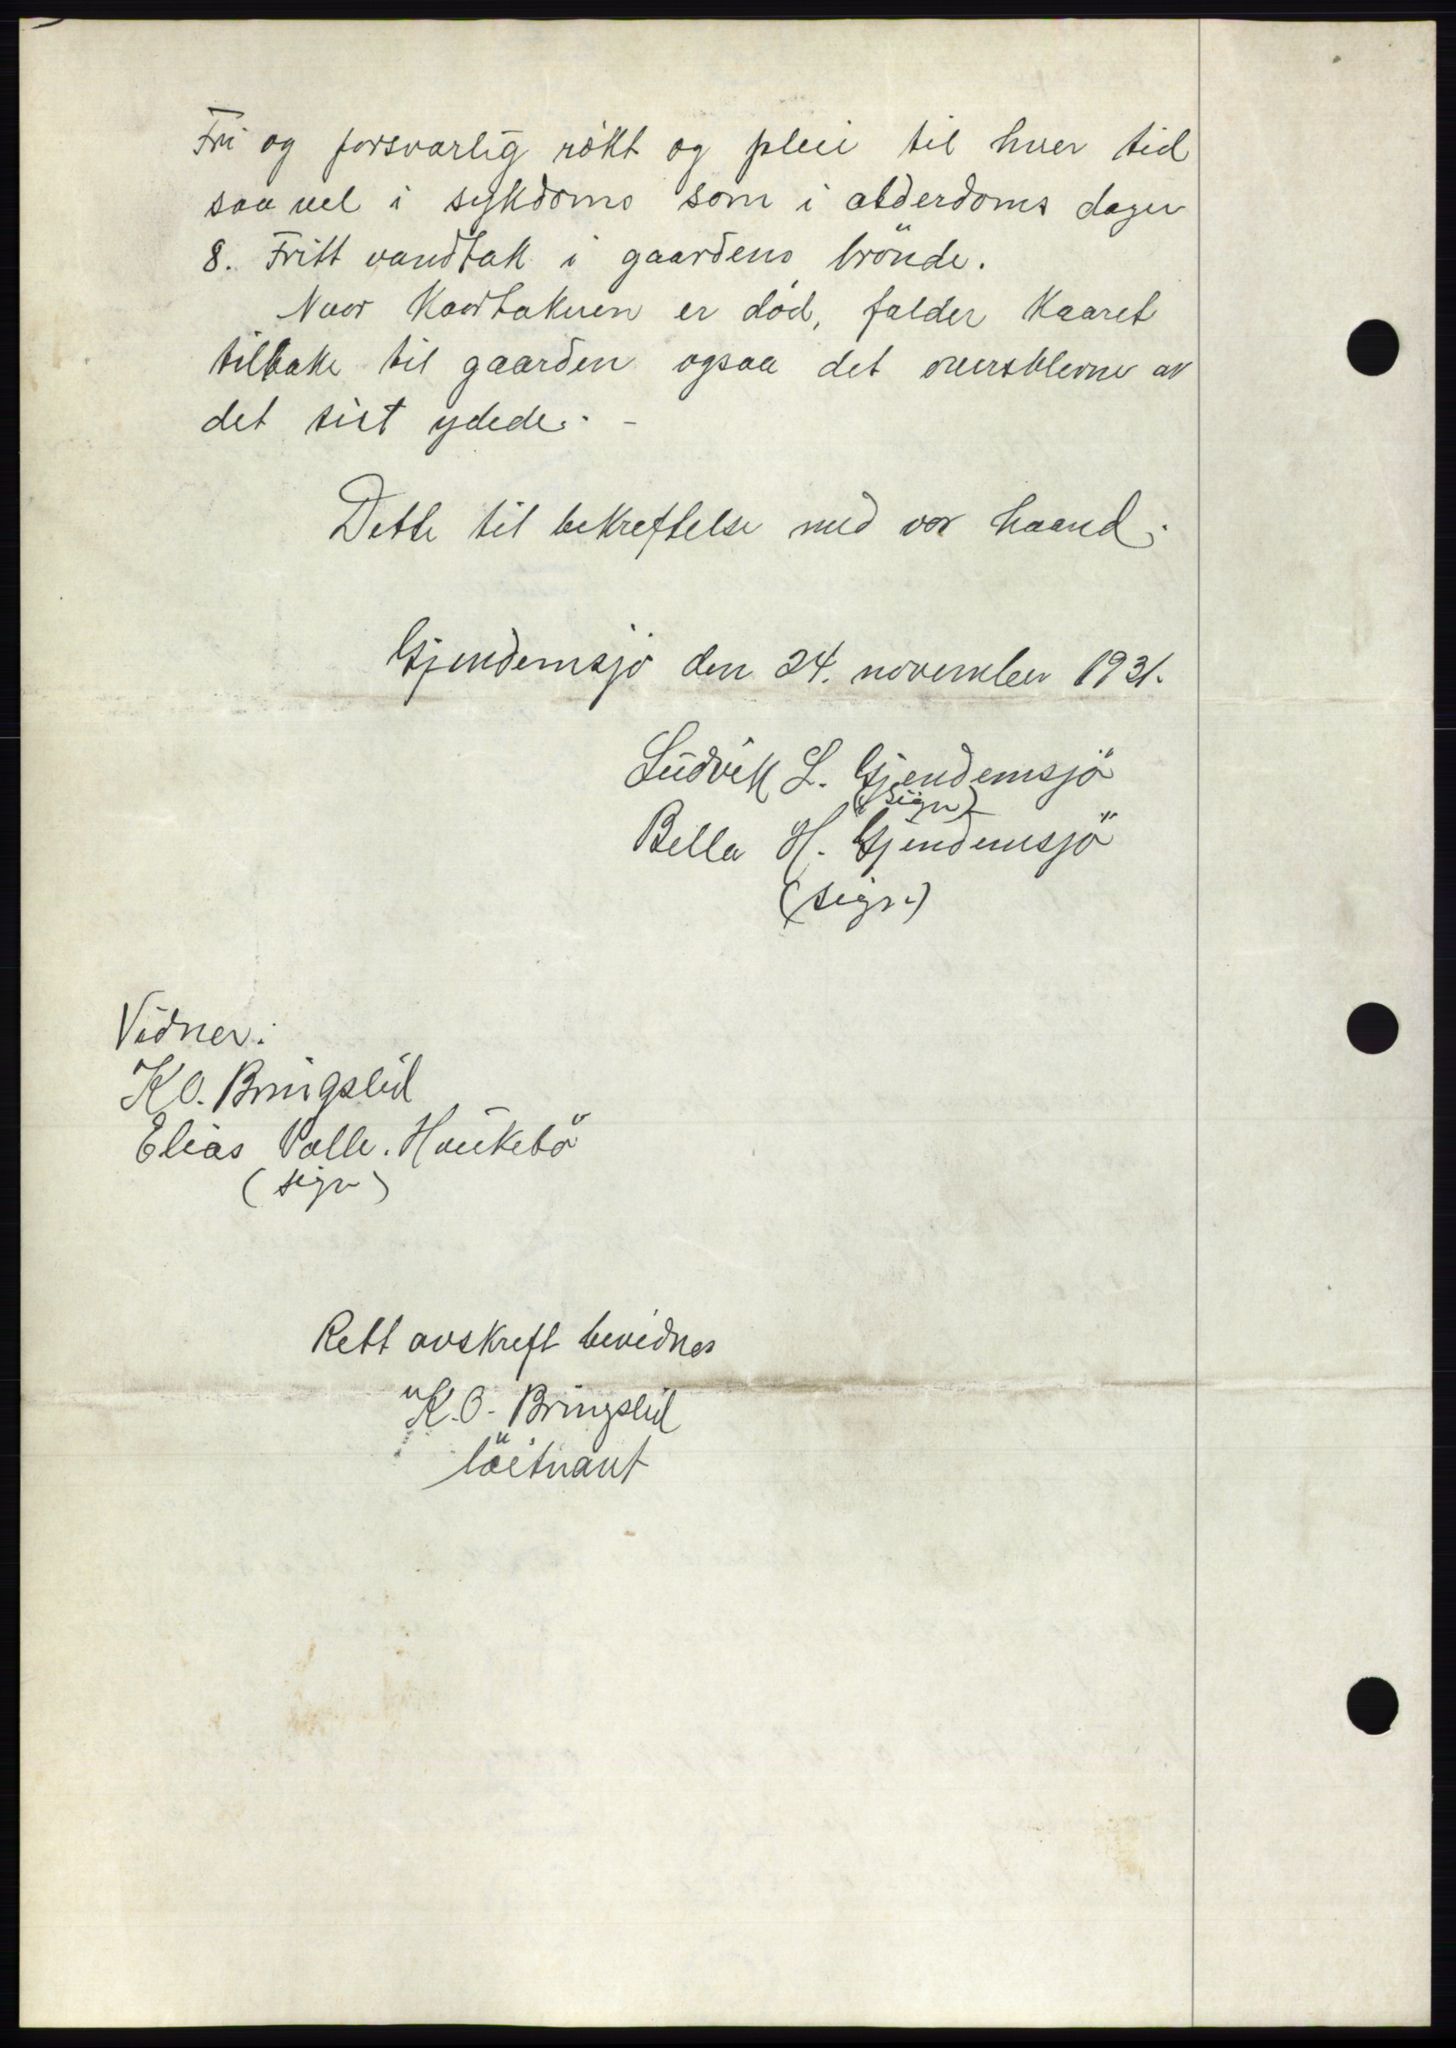 Fri og forsvarlig rökt og pleie til hver tid
saavel i sykdoms som i alderdoms dager
8. Fritt vandtak i gaardens brönde.
Naar Kaartakeren er död, falder Kaaret
tilbake til gaarden ogsaa det oversblevne av
det sist ydede. -
Dette til bekreftelse med vor haand.
Gjendemsjö den 24. november 1931.
Ludvik L. Gjendemsjö
(sign)
Bella H. Gjendemsjö
(sign.)
Vidner:
K O. Bringslid
Elias Valle. Haukebö
(sign)
Rett avskreft bevidnes
K. O. Bringslid
löitnant